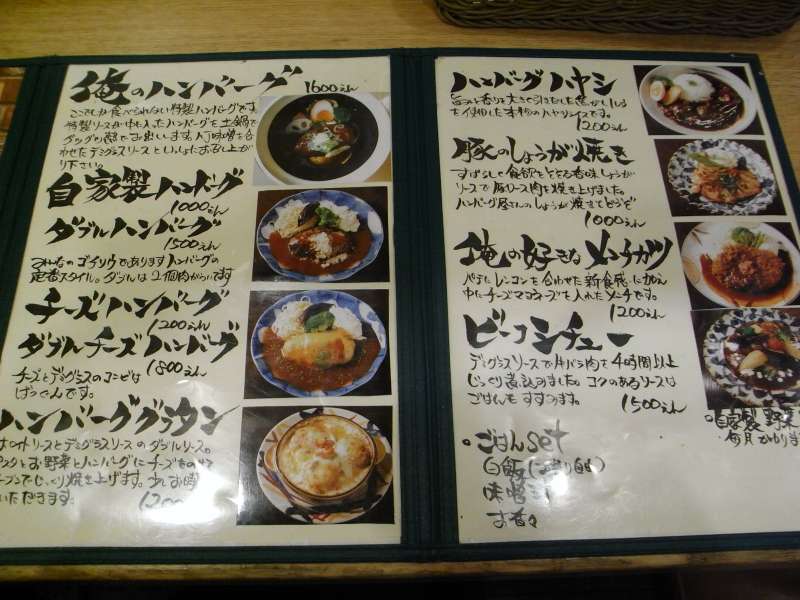 俺のハンバーグ 1600えん
ここでしか食べられない特製ハンバーグです
特製ソースが中に入ったハンバーグを土鍋で
グツグツの鍋でお出しします。八丁味噌を合
わせたデミグラスソースといっしょにお召し上が
り下さい。
自家製ハンバーグ
1000えん
ダブルハンバーグ
1500えん
みんなのゴチソウであります ハンバーグの
定番スタイル。ダブルは2個肉がらいです
チーズハンバーグ
1200えん
ダブルチーズハンバーグ
1800えん
チーズとデミグラスのコンビは
ばつぐんです。
ハンバーググラタン
ホワイトソースとデミグラスソースのダブルソース。
お野菜とハンバーグにチーズをのせて
オーブンでじっくり焼き上げます。少しお時間
いただきます。
ハンバーグハヤシ
を使用した本格ハヤシライスです。
1200えん
豚のしょうが焼き
すばらしく食欲をそそる香味しょうが
ソースで豚ロース肉を焼き上げました。
ハンバーグ屋さんのしょうが焼きをどうぞ
1000えん
俺の好きなメンチカツ
レンコンを合わせた新食感に加え
中にチーズマヨネーズを入れたメンチです。
1200えん
ビーフシチュー
デミグラスソースで牛バラ肉を4時間以上
じっくり煮込みました。コクのあるソースは
ごはんもすすみます。
1500えん
自家製 野菜
ごはんset
白飯
味噌汁
お香々